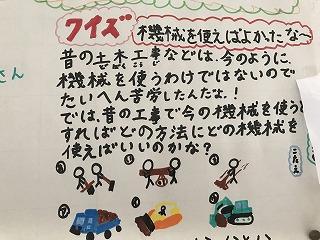 さん
クイズ
機械を使えばよかったな〜
昔の土木工事などは、今のように
機械を使うわけではないので
たいへん苦労したんだよ!
では、昔の工事で今の機械を使うと
すればどの方法にどの機械を
使えばいいのかな?
こたえ